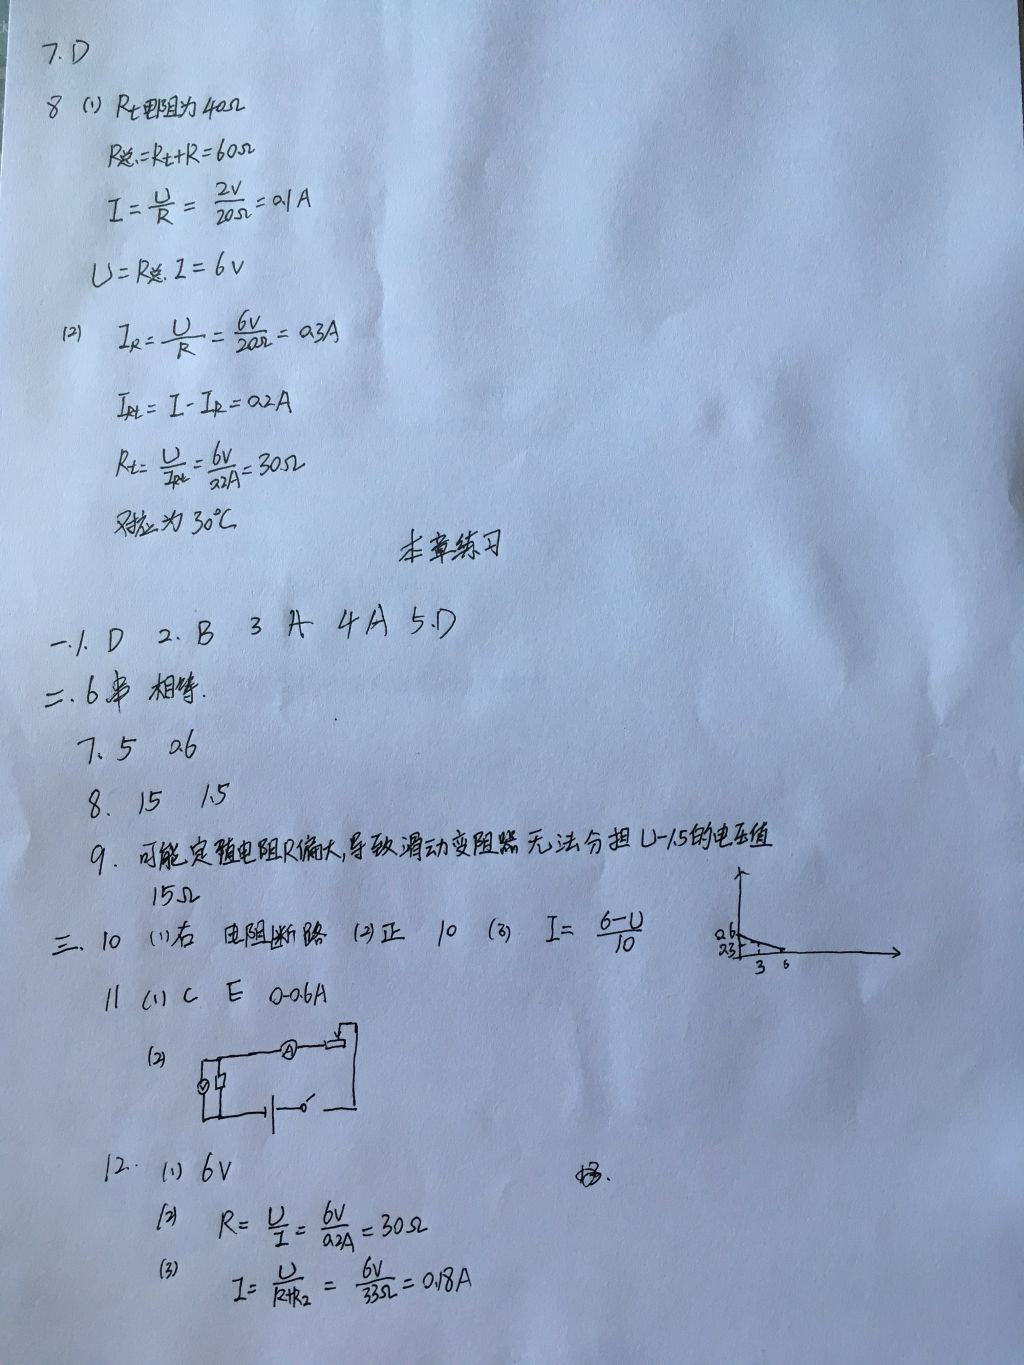 7. D
8 (1) Rt电阻为40Ω
R总=Rt+R=60Ω
I=U/R=2V/20Ω=0.1A
U=R总.I=6V
(2) IR=U/R=6V/20Ω=0.3A
IRt=I-IR=0.2A
Rt=U/IRt=6V/0.2A=30Ω
对应为30℃
本章练习
一.1. D 2. B 3 A 4 A 5. D
二.6 串 相等.
7. 5 0.6
8. 15 1.5
9. 可能定值电阻R偏大,导致滑动变阻器无法分担U-1.5的电压值
15Ω
三.10 (1)右 电阻断路 (2)正 10 (3) I=6-U/10
0.6
0.3
3 6
11 (1) C E 0-0.6A
(2)
A
V
12. (1) 6V
(2) R=U/I=6V/0.2A=30Ω
(3) I=U/R+R2=6V/33Ω=0.18A